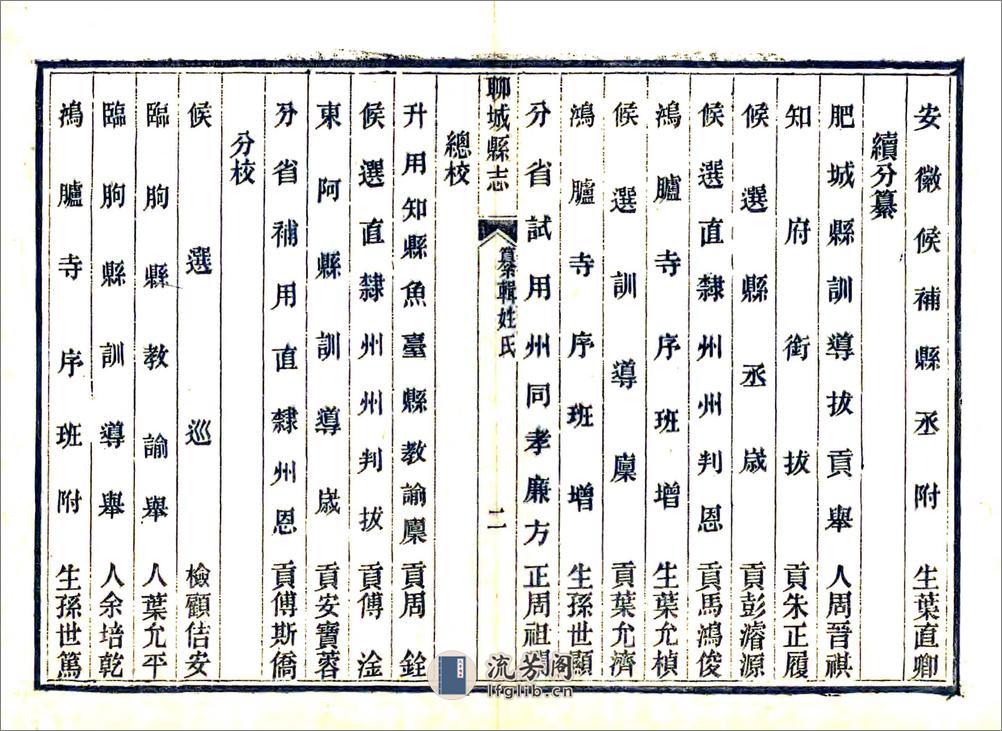 安徽候補縣丞附生葉直卿
續分纂
肥城縣訓導拔貢舉人周晉祺
知府銜拔貢朱正履
候選縣丞歲貢彭濬源
候選直隸州州判恩貢馬鴻俊
鴻臚寺序班增生葉允楨
候選訓導廩貢葉允濟
鴻臚寺序班增生孫世顯
分省試用州同孝廉方正周祖
聊城縣志
纂輯姓氏
二
總校
升用知縣魚臺縣教諭廩貢周銓
候選直隸州州判拔貢傅淦
東阿縣訓導歲貢安寶蓉
分省補用直隸州恩貢傅斯僑
分校
候選巡檢顧佶安
臨朐縣教諭舉人葉允平
臨朐縣訓導舉人余培乾
鴻臚寺序班附生孫世篤
流芳閣
lfglib.cn